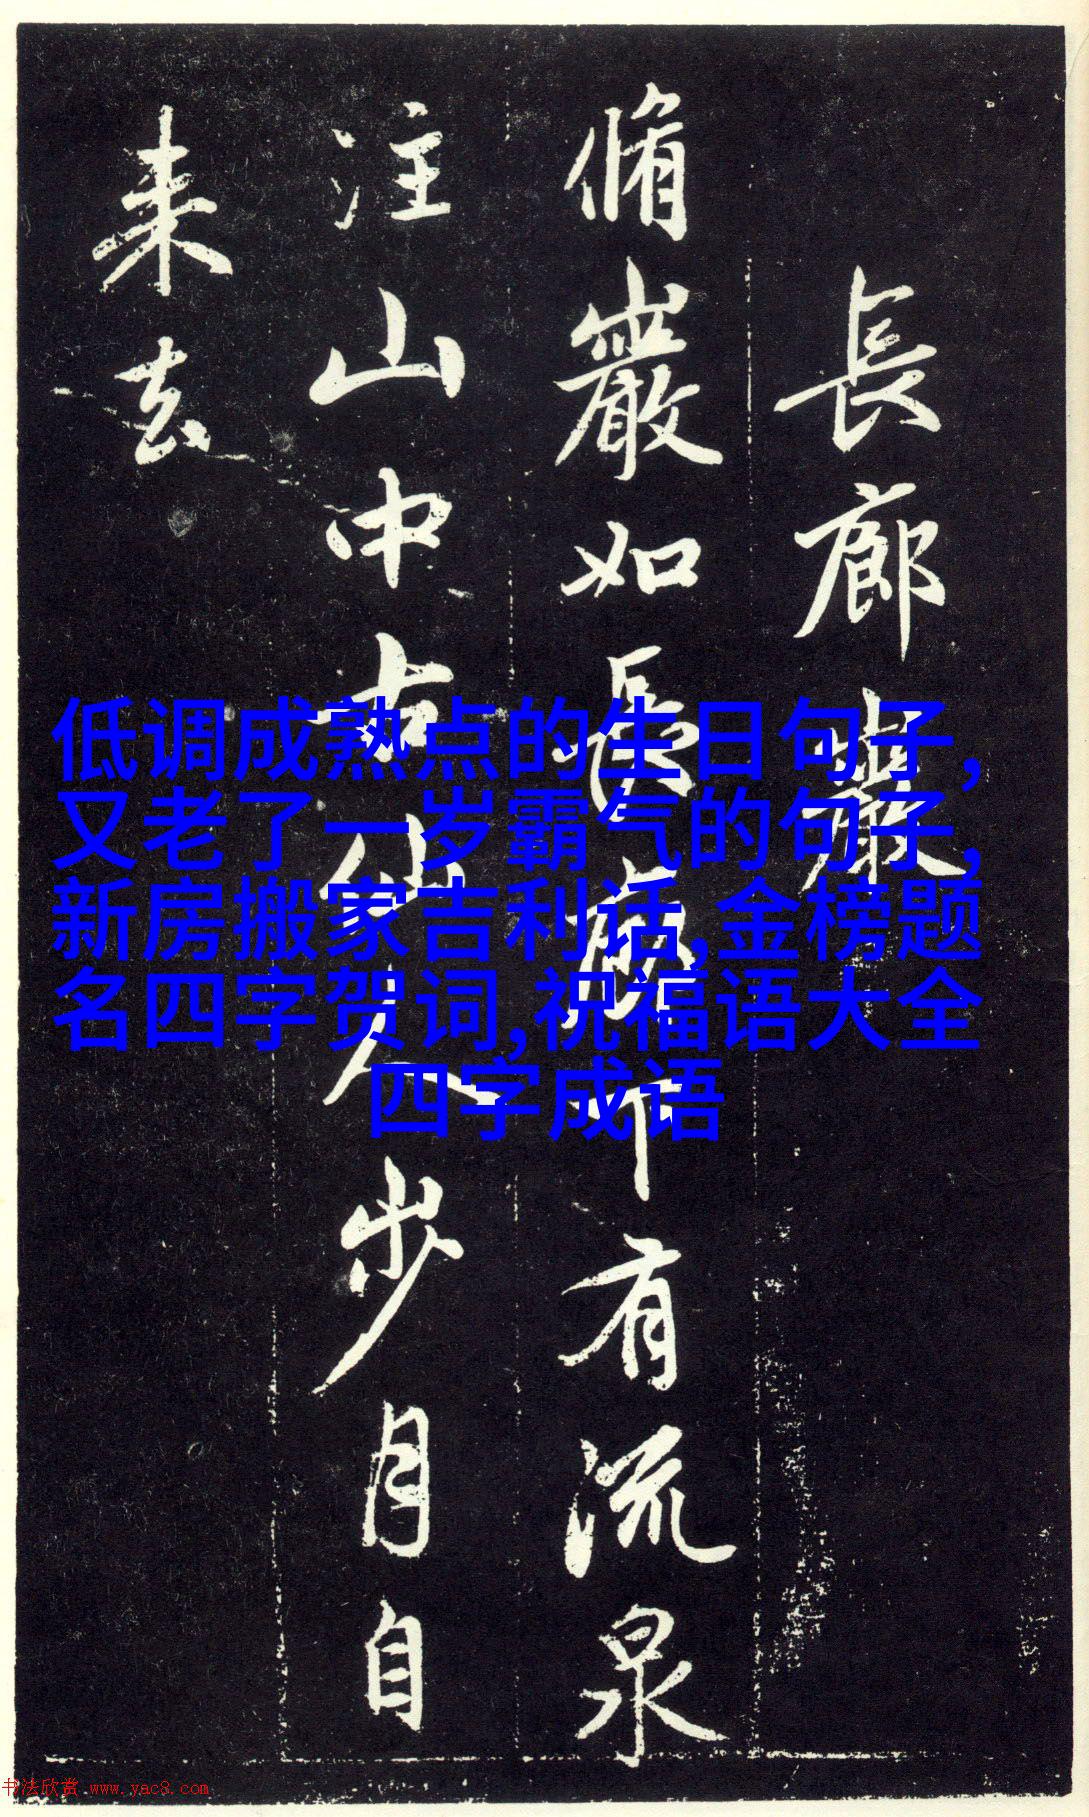 長廊巖
脩巖如長廊下有流泉
注山中古仙人步月自
来去
低调成熟点的生日句子，
又老了一岁霸气的句子，
新房搬家吉利话,金榜题
名四字贺词,祝福语大全
四字成语
书法欣赏 www.yac8.com